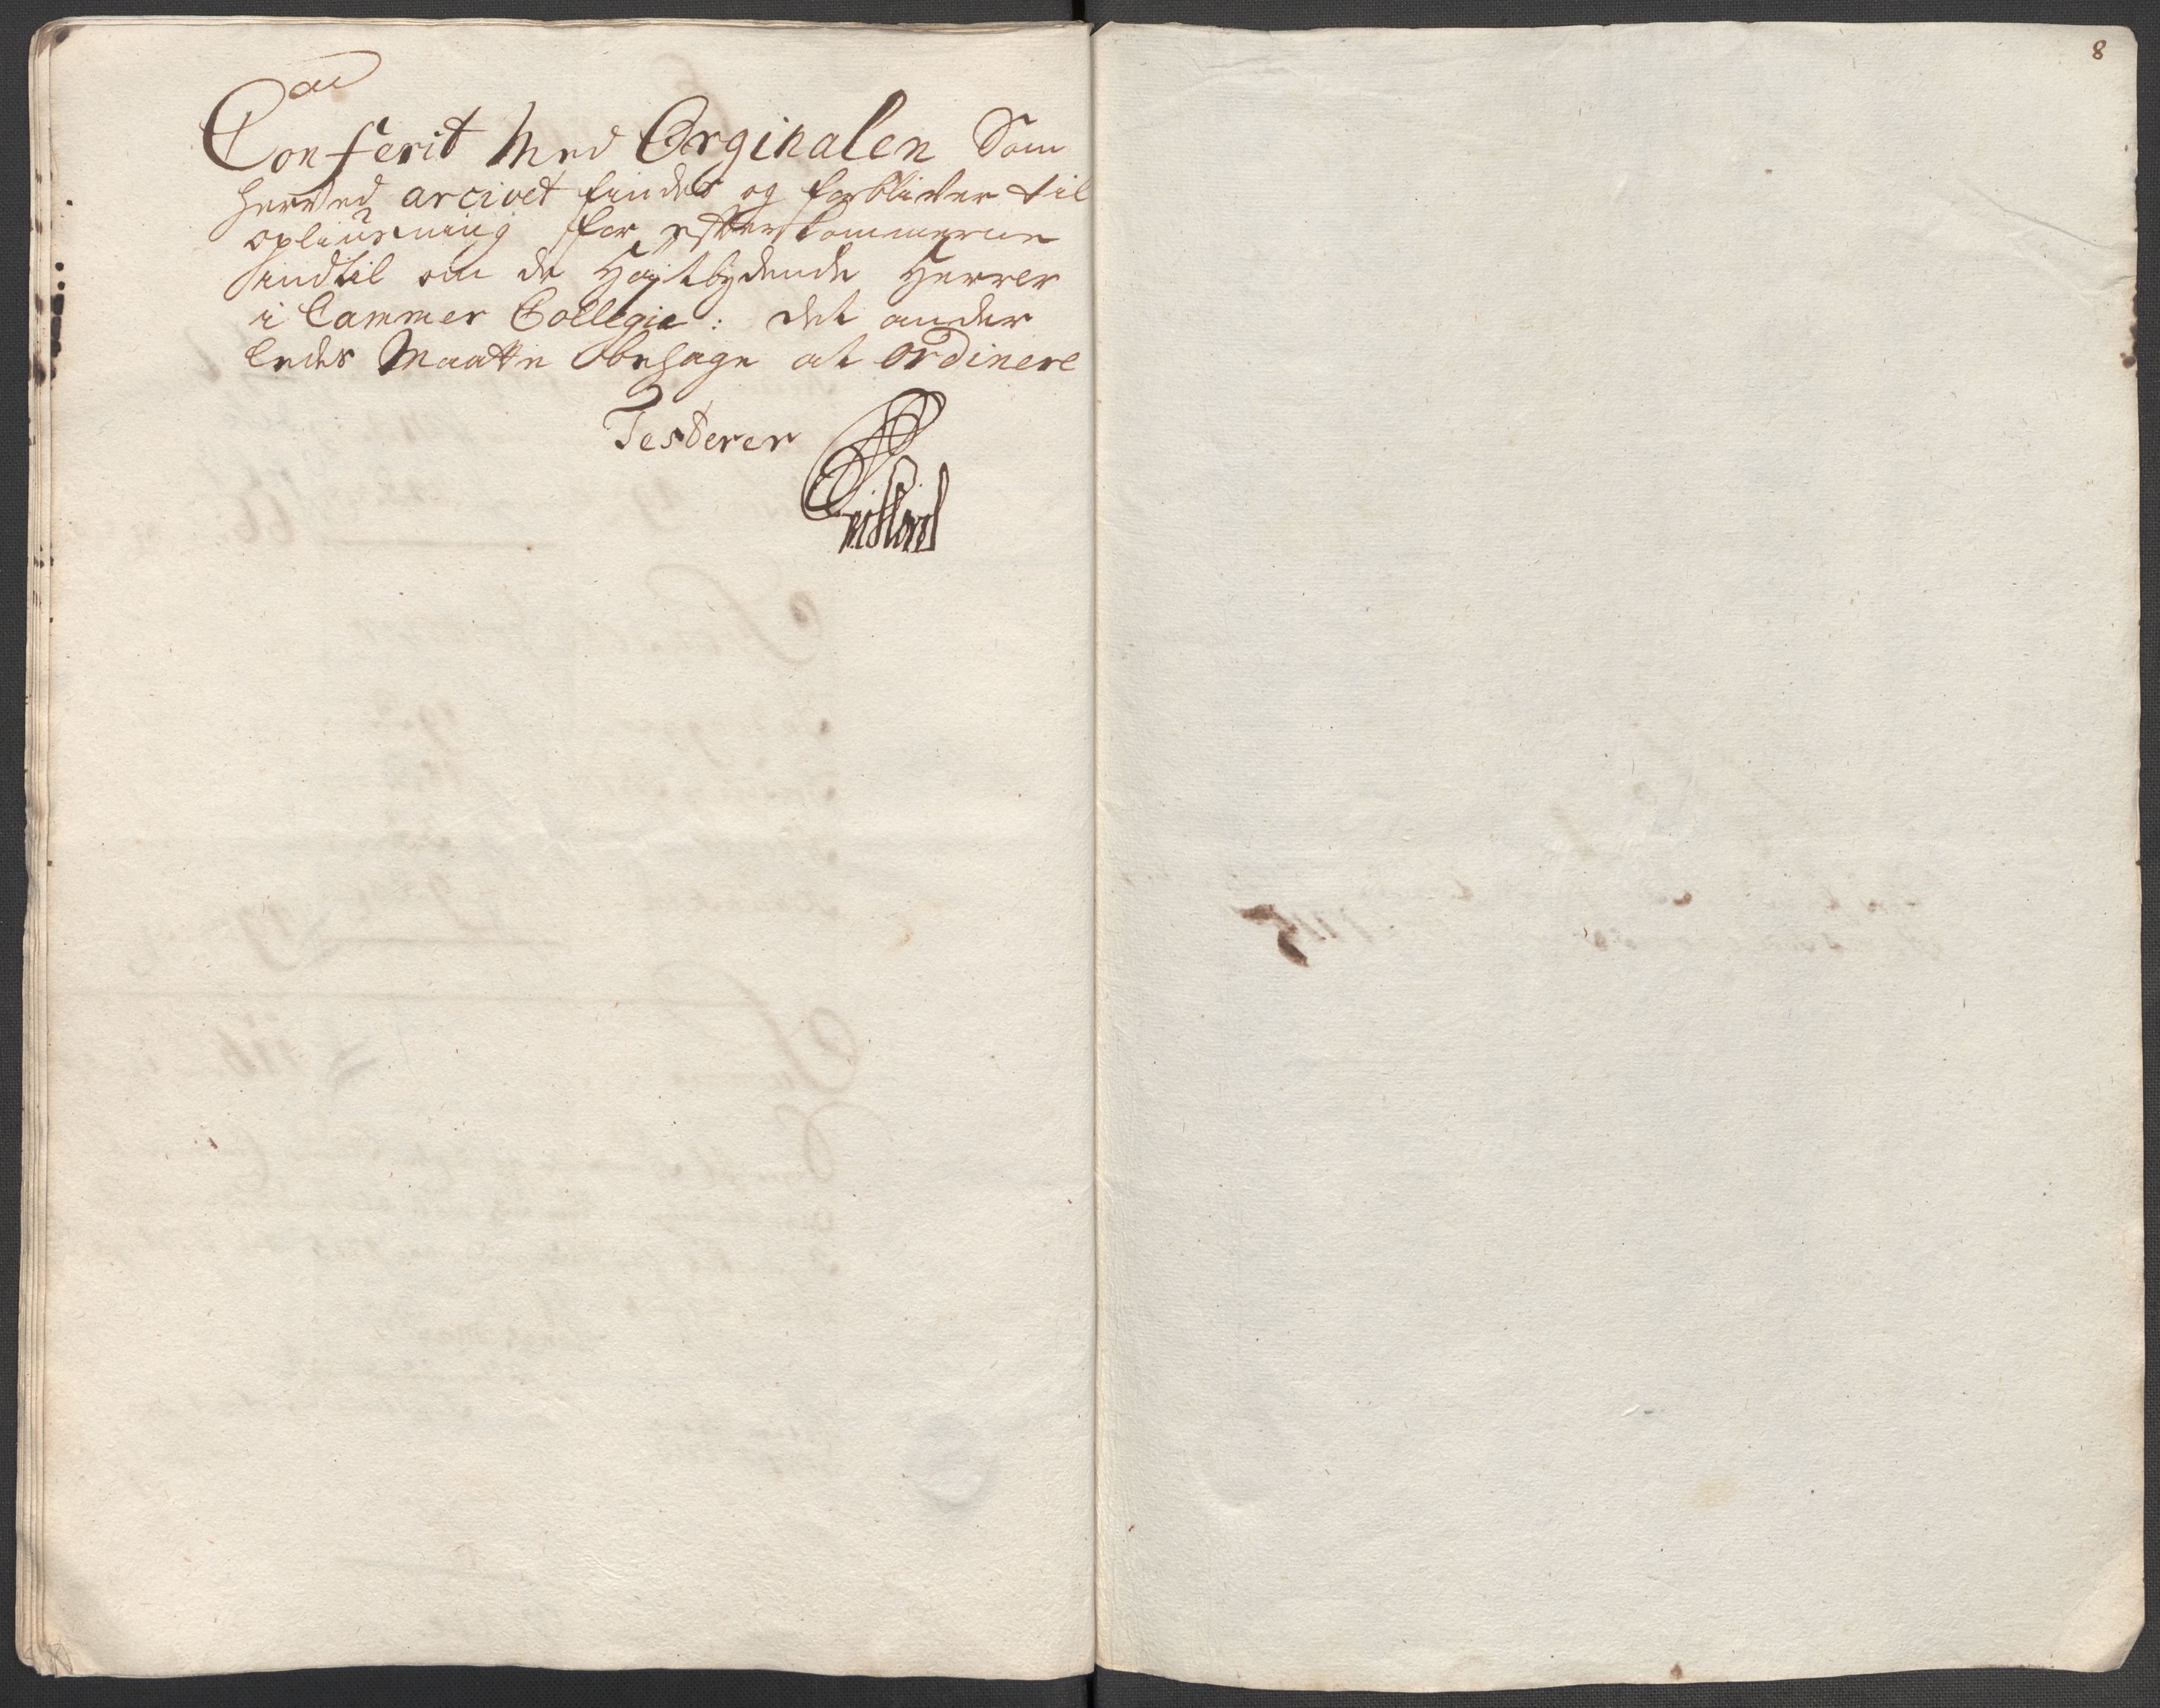 Conferit Med Orginalen Som
herved arcivet findes og forbliver til
opliusning for efterkommerne
indtil om de Høytbydende Herrer
i Cammer Collegie: det ander
ledes Maatte behage at ordinere
Testerer
8